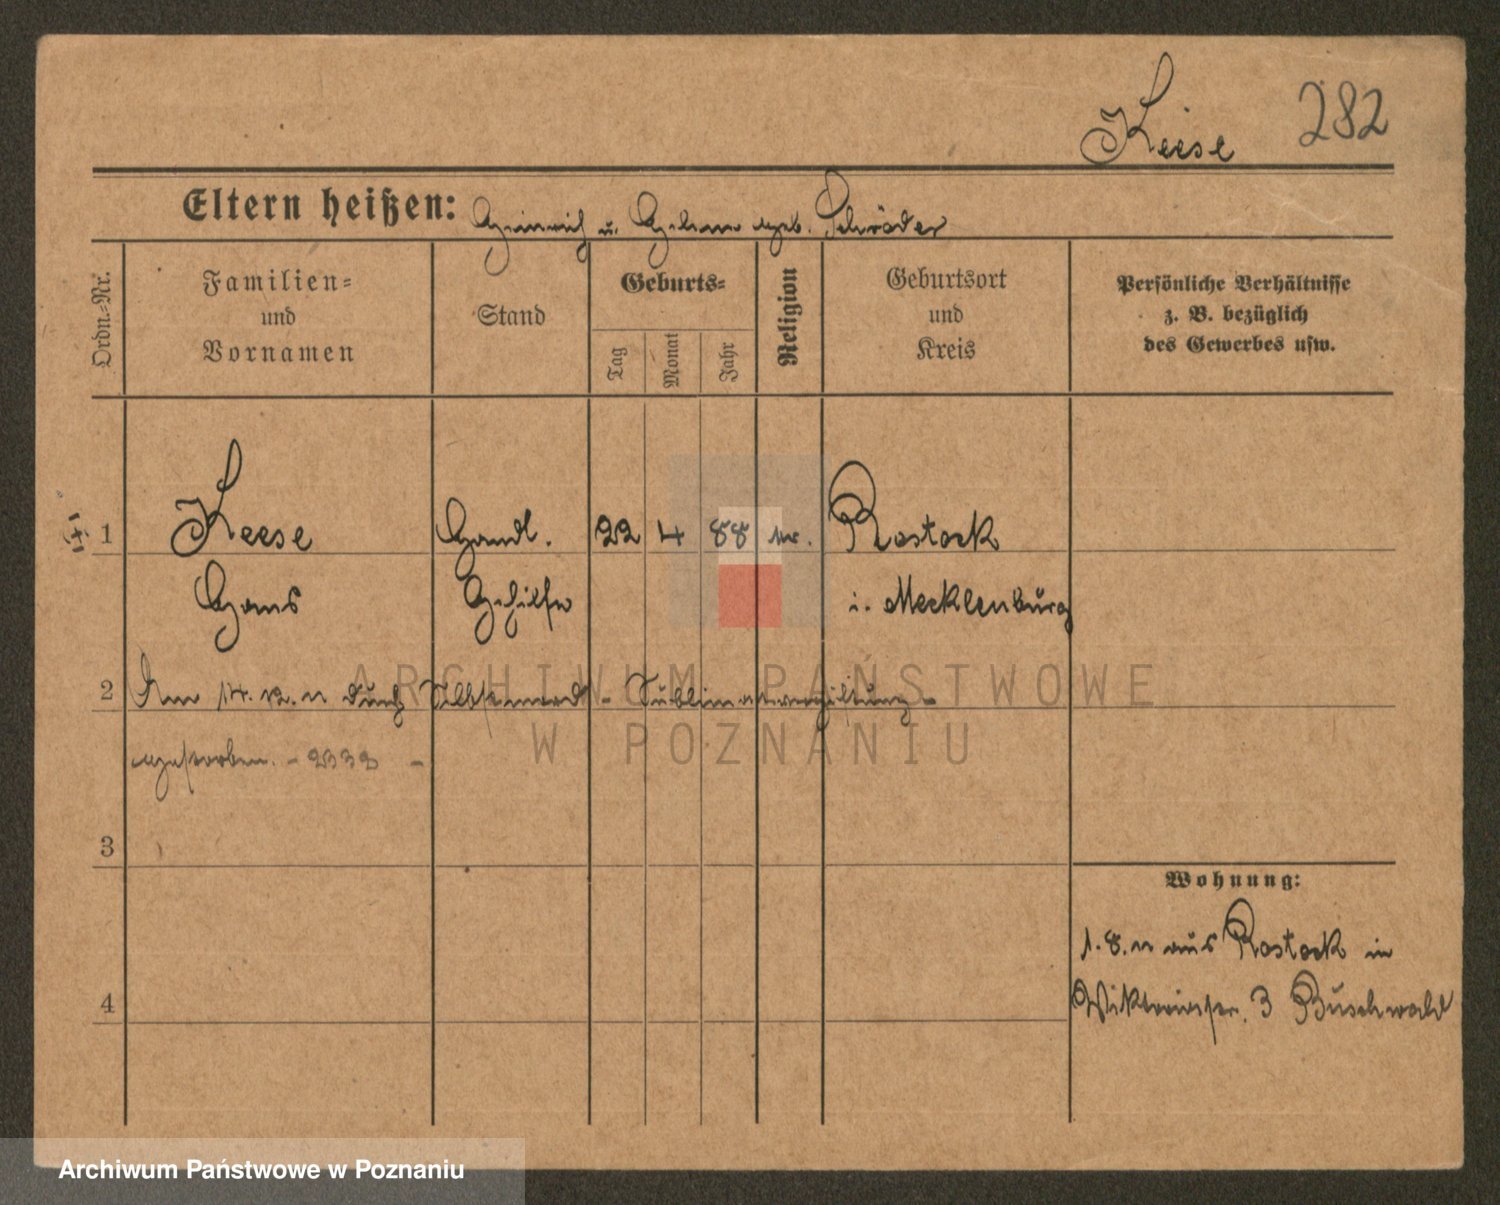 282
Keese
Eltern heißen: Heinrich u. Helene geb. Schröder
Ordn.-Nr.
Familien-
und
Vornamen
Stand
Geburts-
Tag
Monat
Jahr
Religion
Geburtsort
und
Kreis
Persönliche Verhältnisse
z. B. bezüglich
des Gewerbes usw.
1 Keese Handl. 22 4 88 ev. Rostock
Hans Gehilfe i. Mecklenburg
2 Am 14. 12. 11 durch Selbstmord - Sublimatvergiftung -
gestorben. - 2332 -
3
4
Wohnung:
1. 8. 11 aus Rostock in
Viktoriastr. 3 Buschwald
ARCHIWUM PAŃSTWOWE
W POZNANIU
Archiwum Państwowe w Poznaniu